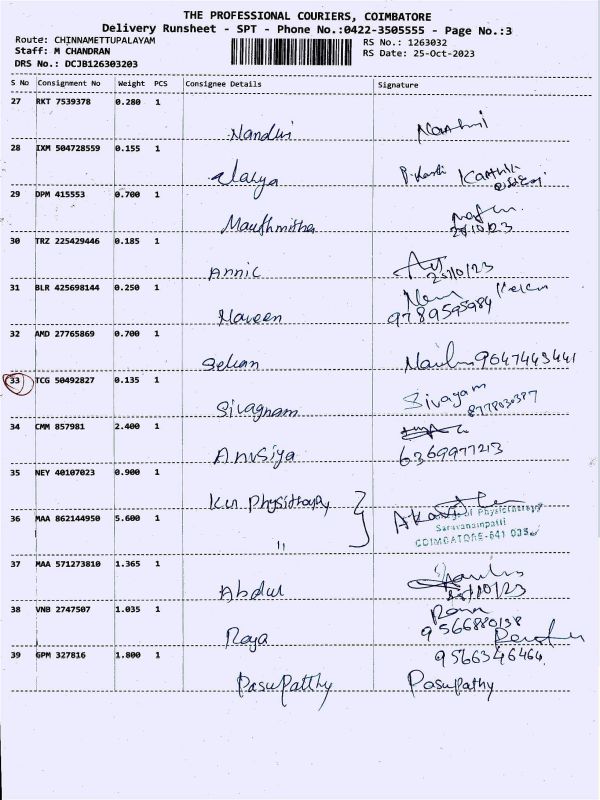 THE PROFESSIONAL COURIERS, COIMBATORE
Delivery Runsheet - SPT - Phone No.:0422-3505555 - Page No.:3
Route: CHINNAMETTUPALAYAM
RS No.: 1263032
Staff: M CHANDRAN
RS Date: 25-Oct-2023
DRS No.: DCJB126303203
S No Consignment No Weight PCS Consignee Details Signature
27 RKT 7539378 0.280 1
Nandini
28 IXM 504728559 0.155 1
Karthik
29 DPM 415553 0.700 1
25/10/23
30 TRZ 225429446 0.185 1
Annic 25/10/23
31 BLR 425698144 0.250 1
Naveen 9789595984
32 AMD 27765869 0.700 1
Selvan 9047443441
33 TCG 50492827 0.135 1
Sivagnam Sivayam
34 CMM 857981 2.400 1
Anusiya 6369977213
35 NEY 40107023 0.900 1
36 MAA 862144950 5.600 1
of Physiotherapy
Saravanampatti
COIMBATORE-641 035
37 MAA 571273810 1.365 1
Abdul 25/10/23
38 VNB 2747507 1.035 1
Roja 9566880138
39 GPM 327816 1.800 1
9566346464
Pasupatthy Pasupathy